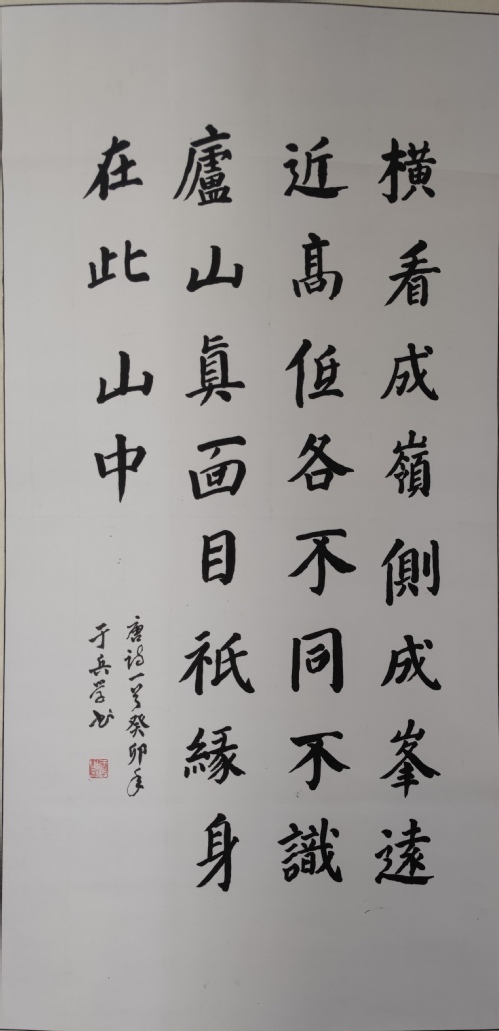 橫看成嶺側成峯遠
近高低各不同不識
廬山眞面目祇緣身
在此山中
唐诗一首癸卯年
于兵学书